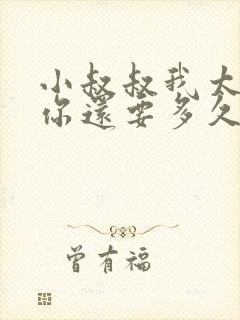 小叔叔我大
你還要多久
曾有福